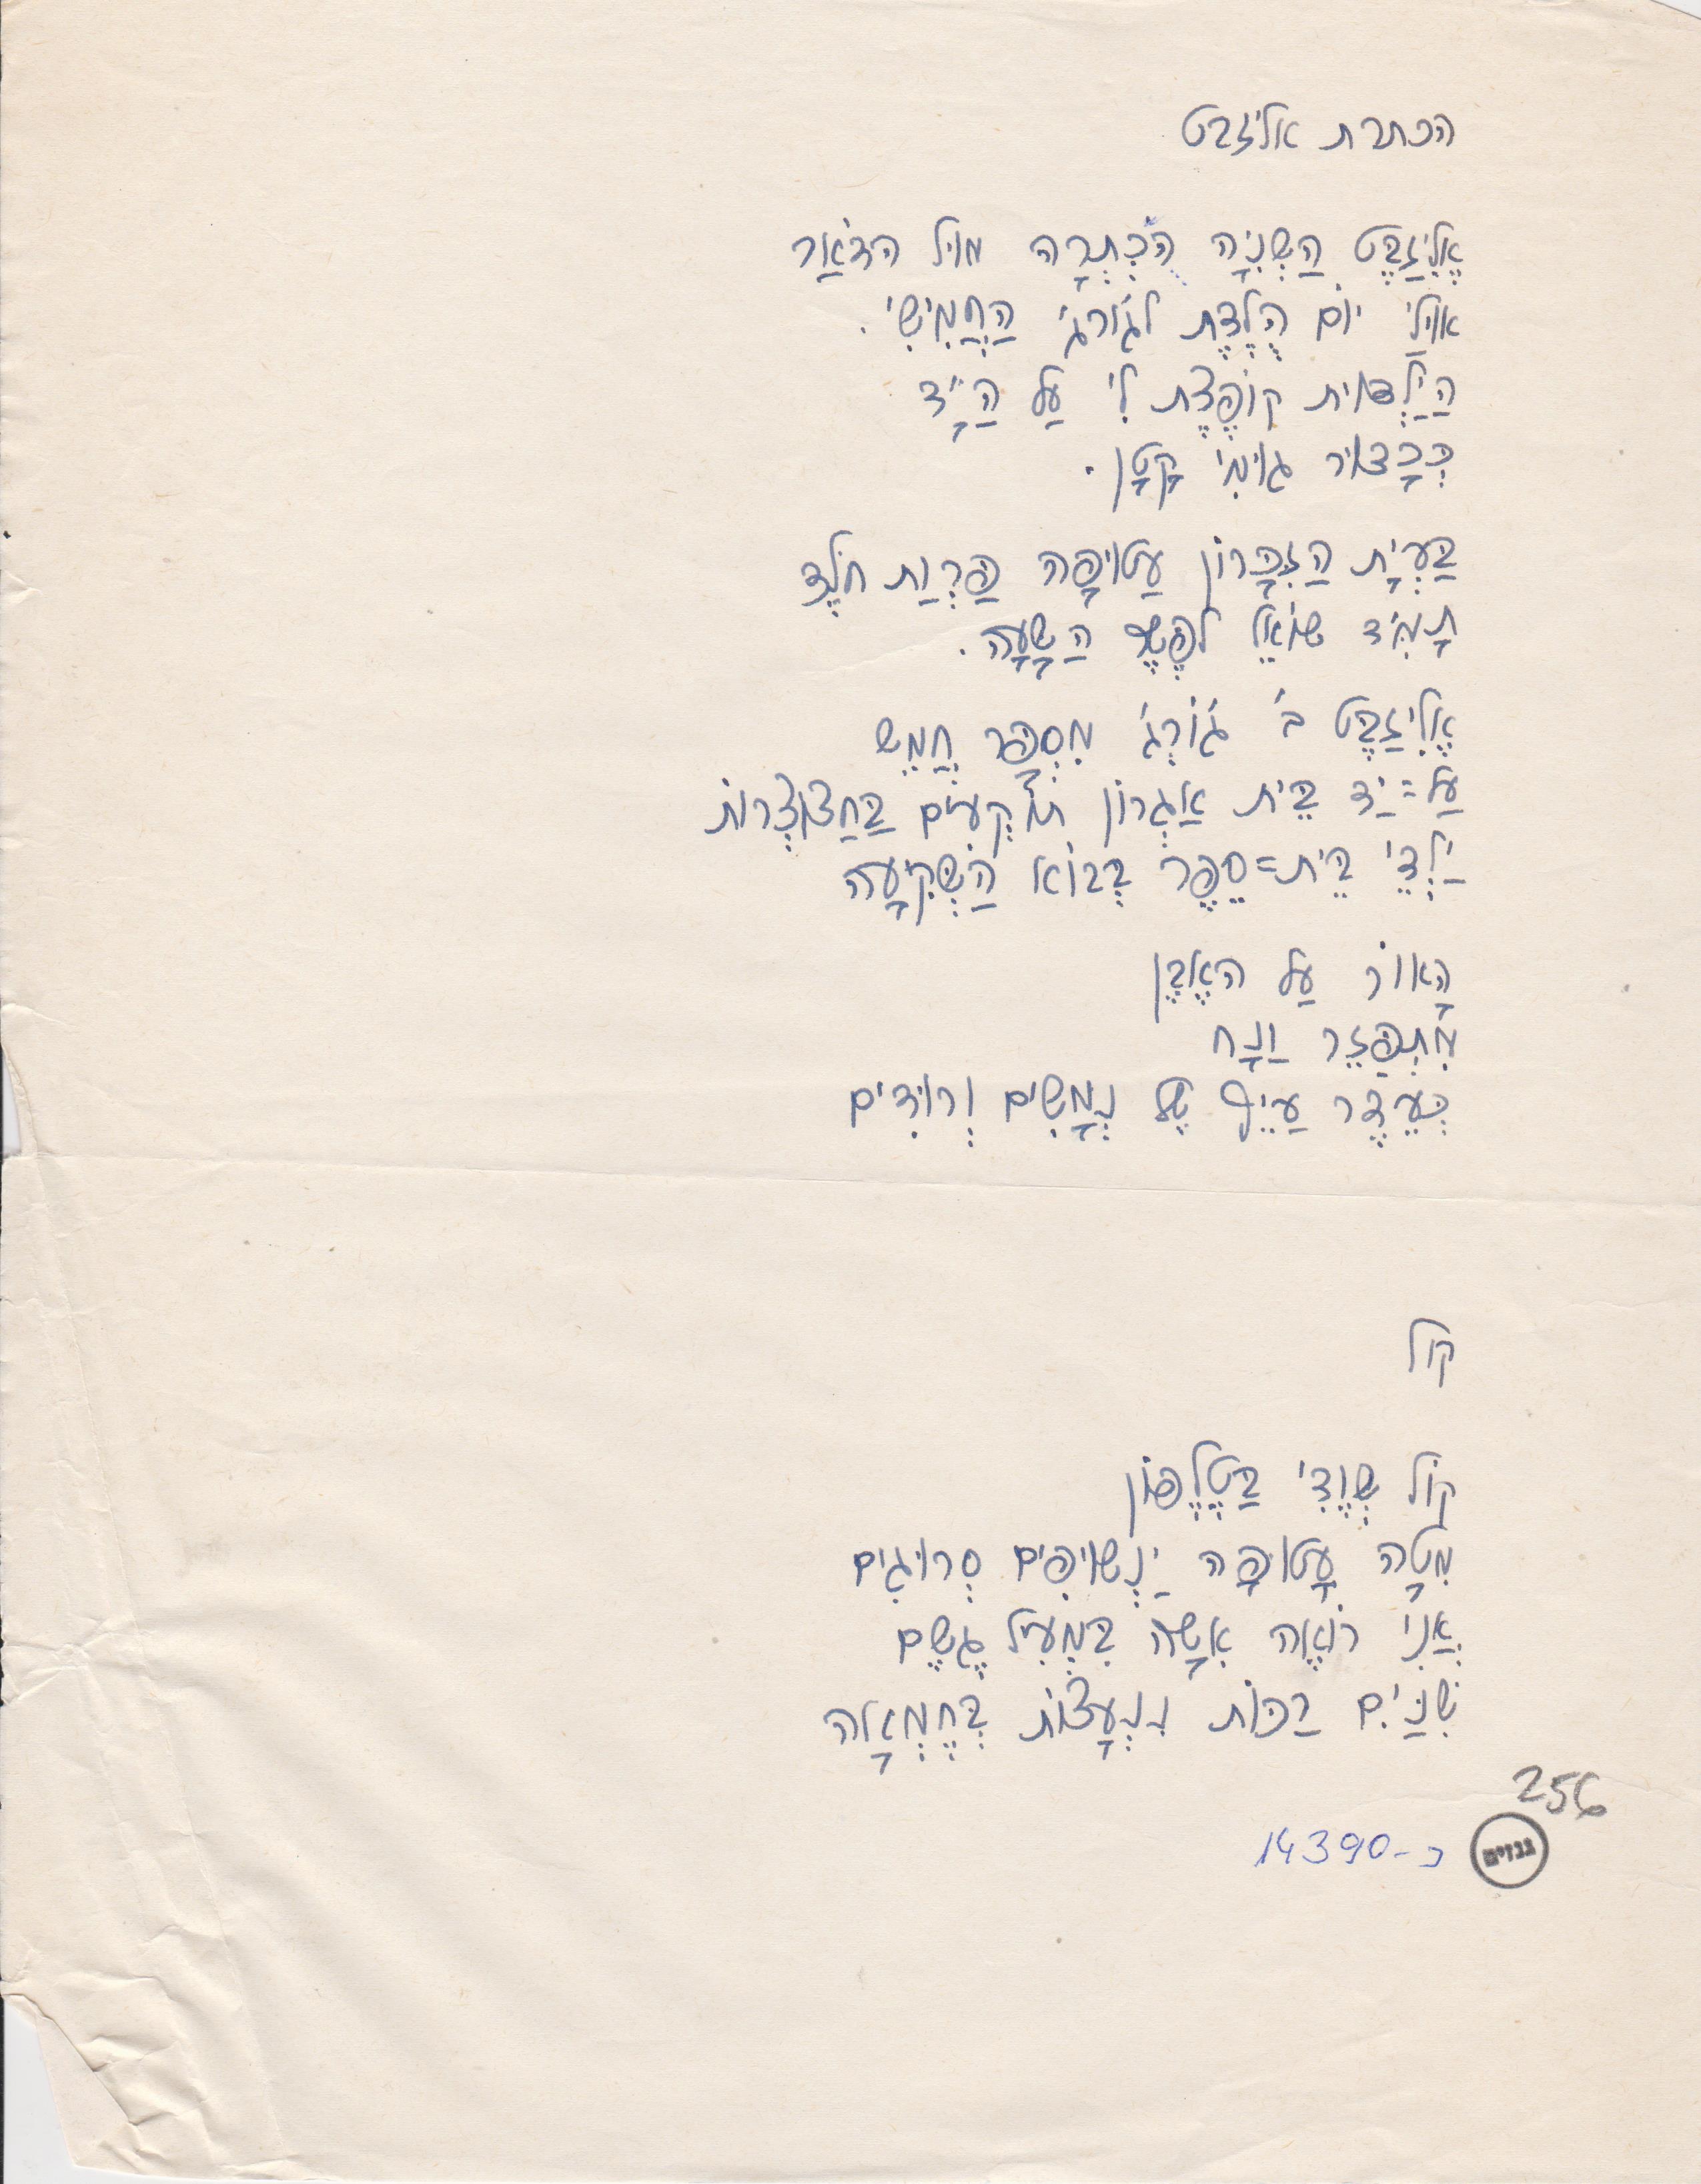 הכתרת אליזבט
אֱלִיזַבֶּט הַשְּׁנִיָּה הֻכְתְּרָה מול הדֹאַר
אולַי יוֹם הֻלֶּדֶת לג'ורג' הַחֲמִישִׁי.
קוֹפֶצֶת לִי עַל הַיָּד
גוּמִי קָטָן.
בַּעְיַת הַזִּכָּרוֹן עֲטוּפָה פַּרְוַת חֹלֶד
תָּמִיד שׁוֹאֵל לְפֶשֶׁר הַשָּׁעָה.
אֱלִיזַבֶּט ב' ג'וֹרְג' מִסְפָּר חָמֵשׁ
עַל=יַד בֵּית אַגְרוֹן תּוֹקְעִים בַּחֲצוֹצְרוֹת
יַלְדֵי בֵּית=סֵפֶר בְּבוֹא הַשְּׁקִיעָה
הָאוֹר עַל הָאֶבֶן
מִתְפַּזֵּר וַנָּח
כְּעֵדֶר עַיֵּף שֶׁל נְמָשִׁים וְרוּדִּים
קול
קוֹל שְׁוֶדִי בַּטֶּלֶפוֹן
מִטָּה עֲטוּפָה יַנְשׁוּפִים סְרוּגִים
אֲנִי רוֹאֶה אִשָּׁה בִּמְעִיל גֶּשֶׁם
שִׁנַּיִם רַכּוֹת נִנְעָצוֹת בְּחֶמְאָה
256
גנזים
כ-14390